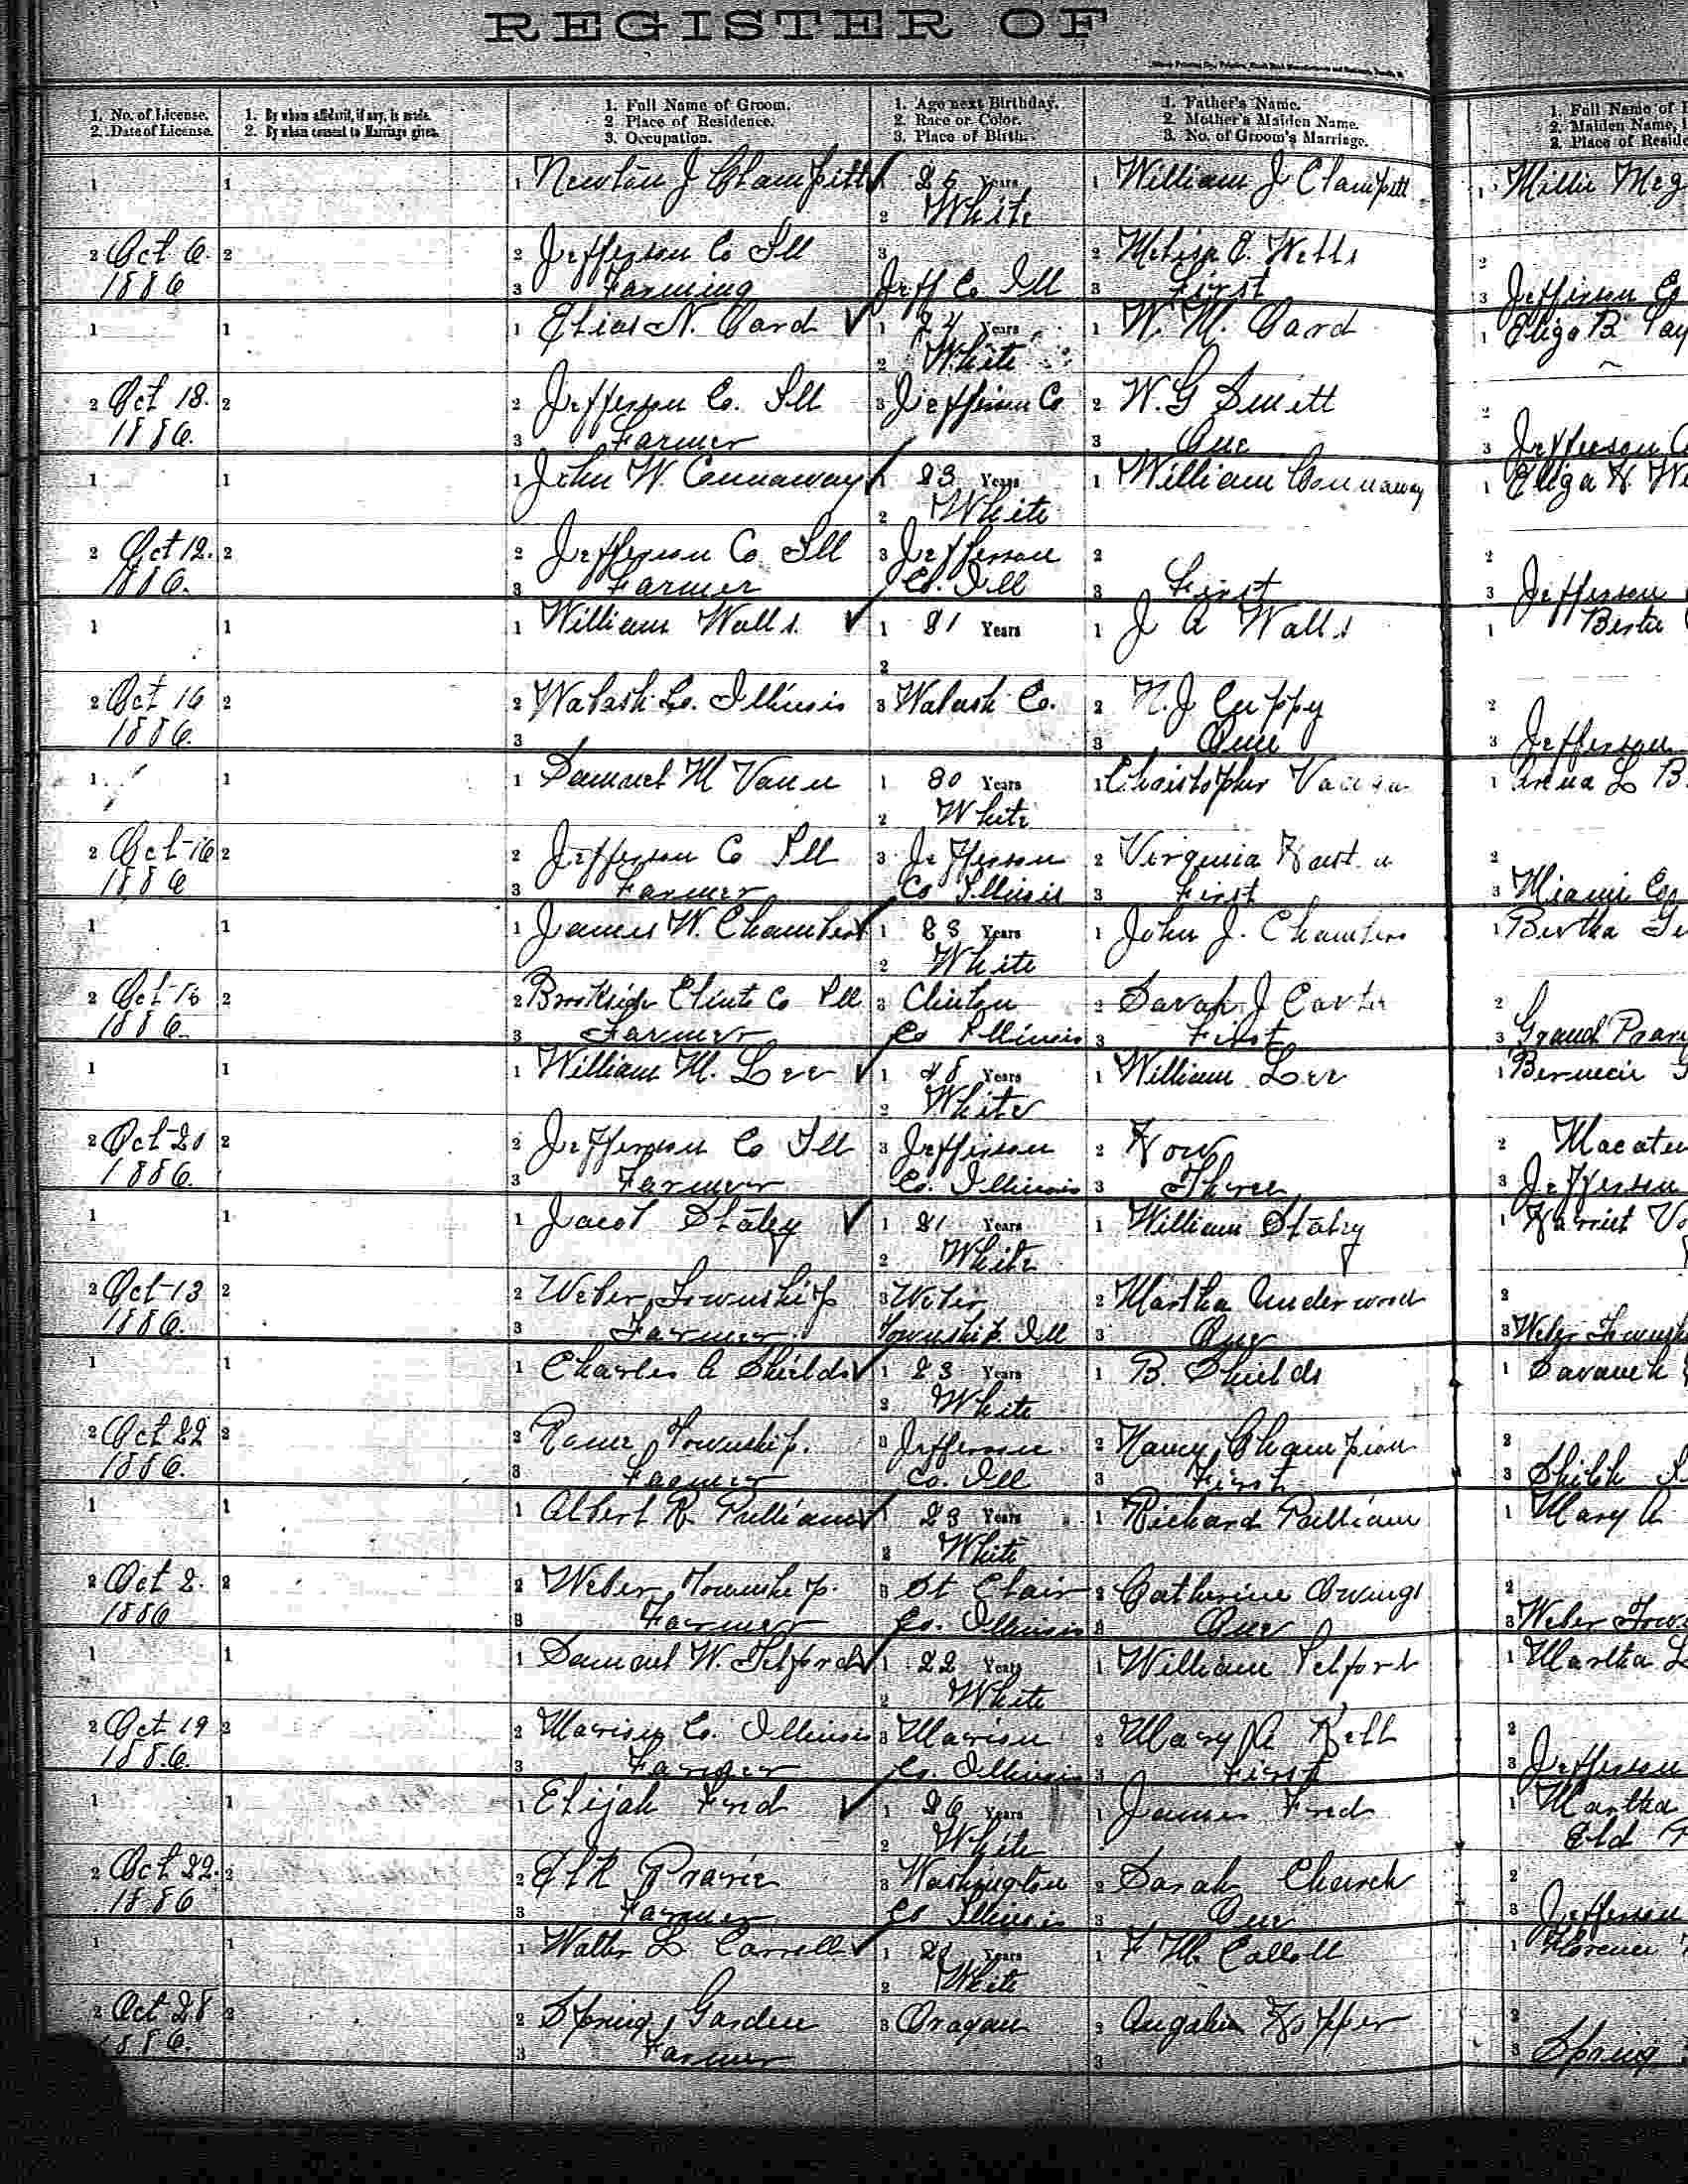 REGISTER OF
1. No. of License.
2. Date of License.
1. By whom affidavit, if any, is made.
2. By whom consent to Marriage given.
1. Full Name of Groom.
2. Place of Residence.
3. Occupation.
1. Age next Birthday.
2. Race or Color.
3. Place of Birth.
1. Father's Name.
2. Mother's Maiden Name.
3. No. of Groom's Marriage.
1. Full Name of
2. Maiden Name,
3. Place of Reside
1 1 1 Newton J Clampitt 1 25 Years 1 William J Clampitt 1 Millie Meg
2 White
2 Oct 6 2 2 Jefferson Co Ill 3 2 Melisa E. Wells 2
1886 3 Farming Jeff Co. Ill 3 First 3 Jefferson Co
1 1 1 Elias N. Card 1 24 Years 1 W. M. Card 1 Eliza B Pay
2 White
2 Oct 18. 2 2 Jefferson Co. Ill 3 Jefferson Co 2 W. G 2
1886. 3 Farmer 3 One 3 Jefferson C
1 1 1 John W. Connaway 1 23 Years 1 William Connaway 1 Eliza
2 White
2 Oct 12. 2 2 Jefferson Co Ill 3 Jefferson 2 2
1886. 3 Farmer Co. Ill 3 First 3 Jefferson
1 1 1 William Walls 1 21 Years 1 J A Walls 1
2
2 Oct 16 2 2 Wabash Co. Illinois 3 Wabash Co. 2 N. J Cuppy 2
1886. 3 3 One 3 Jefferson
1 1 1 Samuel M Vann 1 30 Years 1 Christopher 1
2 White
2 Oct 16 2 2 Jefferson Co Ill 3 Jefferson 2 Virginia 2
1886 3 Farmer Co Illinois 3 First 3 Miami Co
1 1 1 James W. Chambers 1 23 Years 1 John J. Chambers 1 Bertha
2 White
2 Oct 2 2 Brookside Clinto Co Ill 3 Clinton 2 Sarah J Carter 2
1886. 3 Farmer Co Illinois 3 First 3 Grand Prar
1 1 1 William M. Lee 1 Years 1 William Lee 1
2 White
2 Oct 20 2 2 Jefferson Co Ill 3 Jefferson 2 2
1886. 3 Farmer Co. Illinois 3 Three 3 Jefferson
1 1 1 Jacob Staley 1 21 Years 1 William Staley 1 Harriet
2 White
2 Oct 13 2 2 Weber Township 3 Weber 2 Martha Underwood 2
1886. 3 Farmer Township. Ill 3 One 3 Weber Townsh
1 1 1 Charles A Shields 1 23 Years 1 B. Shields 1 Savanah
2 White
2 Oct 22 2 2 Rome Township. 3 Jefferson 2 Nancy Champion 2
1886. 3 Farmer Co. Ill 3 First 3 Shiloh
1 1 1 Albert R. Pulliam 1 23 Years 1 Richard Pulliam 1 Mary A
2 White
2 Oct 2. 2 2 Weber Township. 3 St Clair 2 Catherine Owings 2
1886 3 Farmer Co. Illinois 3 One 3 Weber Tow
1 1 1 Samuel W. Telford 1 22 Years 1 William Telford 1 Martha L
2 White
2 Oct 19 2 2 Marion Co. Illinois 3 Marion 2 Mary A Kell 2
1886. 3 Farmer Co. Illinois 3 First 3 Jefferson
1 1 1 Elijah Frid 1 26 Years 1 James Frid 1 Martha
2 White
2 Oct 22. 2 2 Elk Prairie 3 Washington 2 Sarah Church 2
1886 3 Farmer Co Illinois 3 One 3 Jefferson
1 1 1 Walter L. Carrell 1 21 Years 1 1 Florence
2 White
2 Oct 28 2 2 Spring Garden 3 Oragan 2 2
1886. 3 Farmer 3 3 Spring